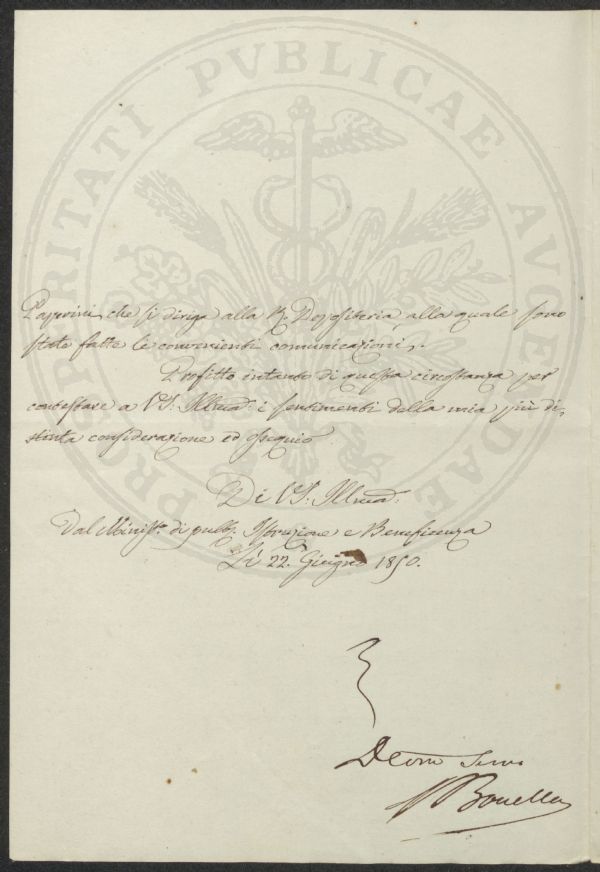 PROSPERITATI PVBLICAE AVGENDAE
Paperini, che si diriga alla R. Depositeria, alla quale sono
state fatte le convenienti comunicazioni.
Profitto intanto di questa circostanza per
contestare a VS. Illma: i sentimenti della mia più di,
stinta considerazione ed ossequio
Di VS. Illma:
Dal Minist. di pubb. Istruzione e Beneficenza
Li 22. Giugno 1850.
Devmo Servo